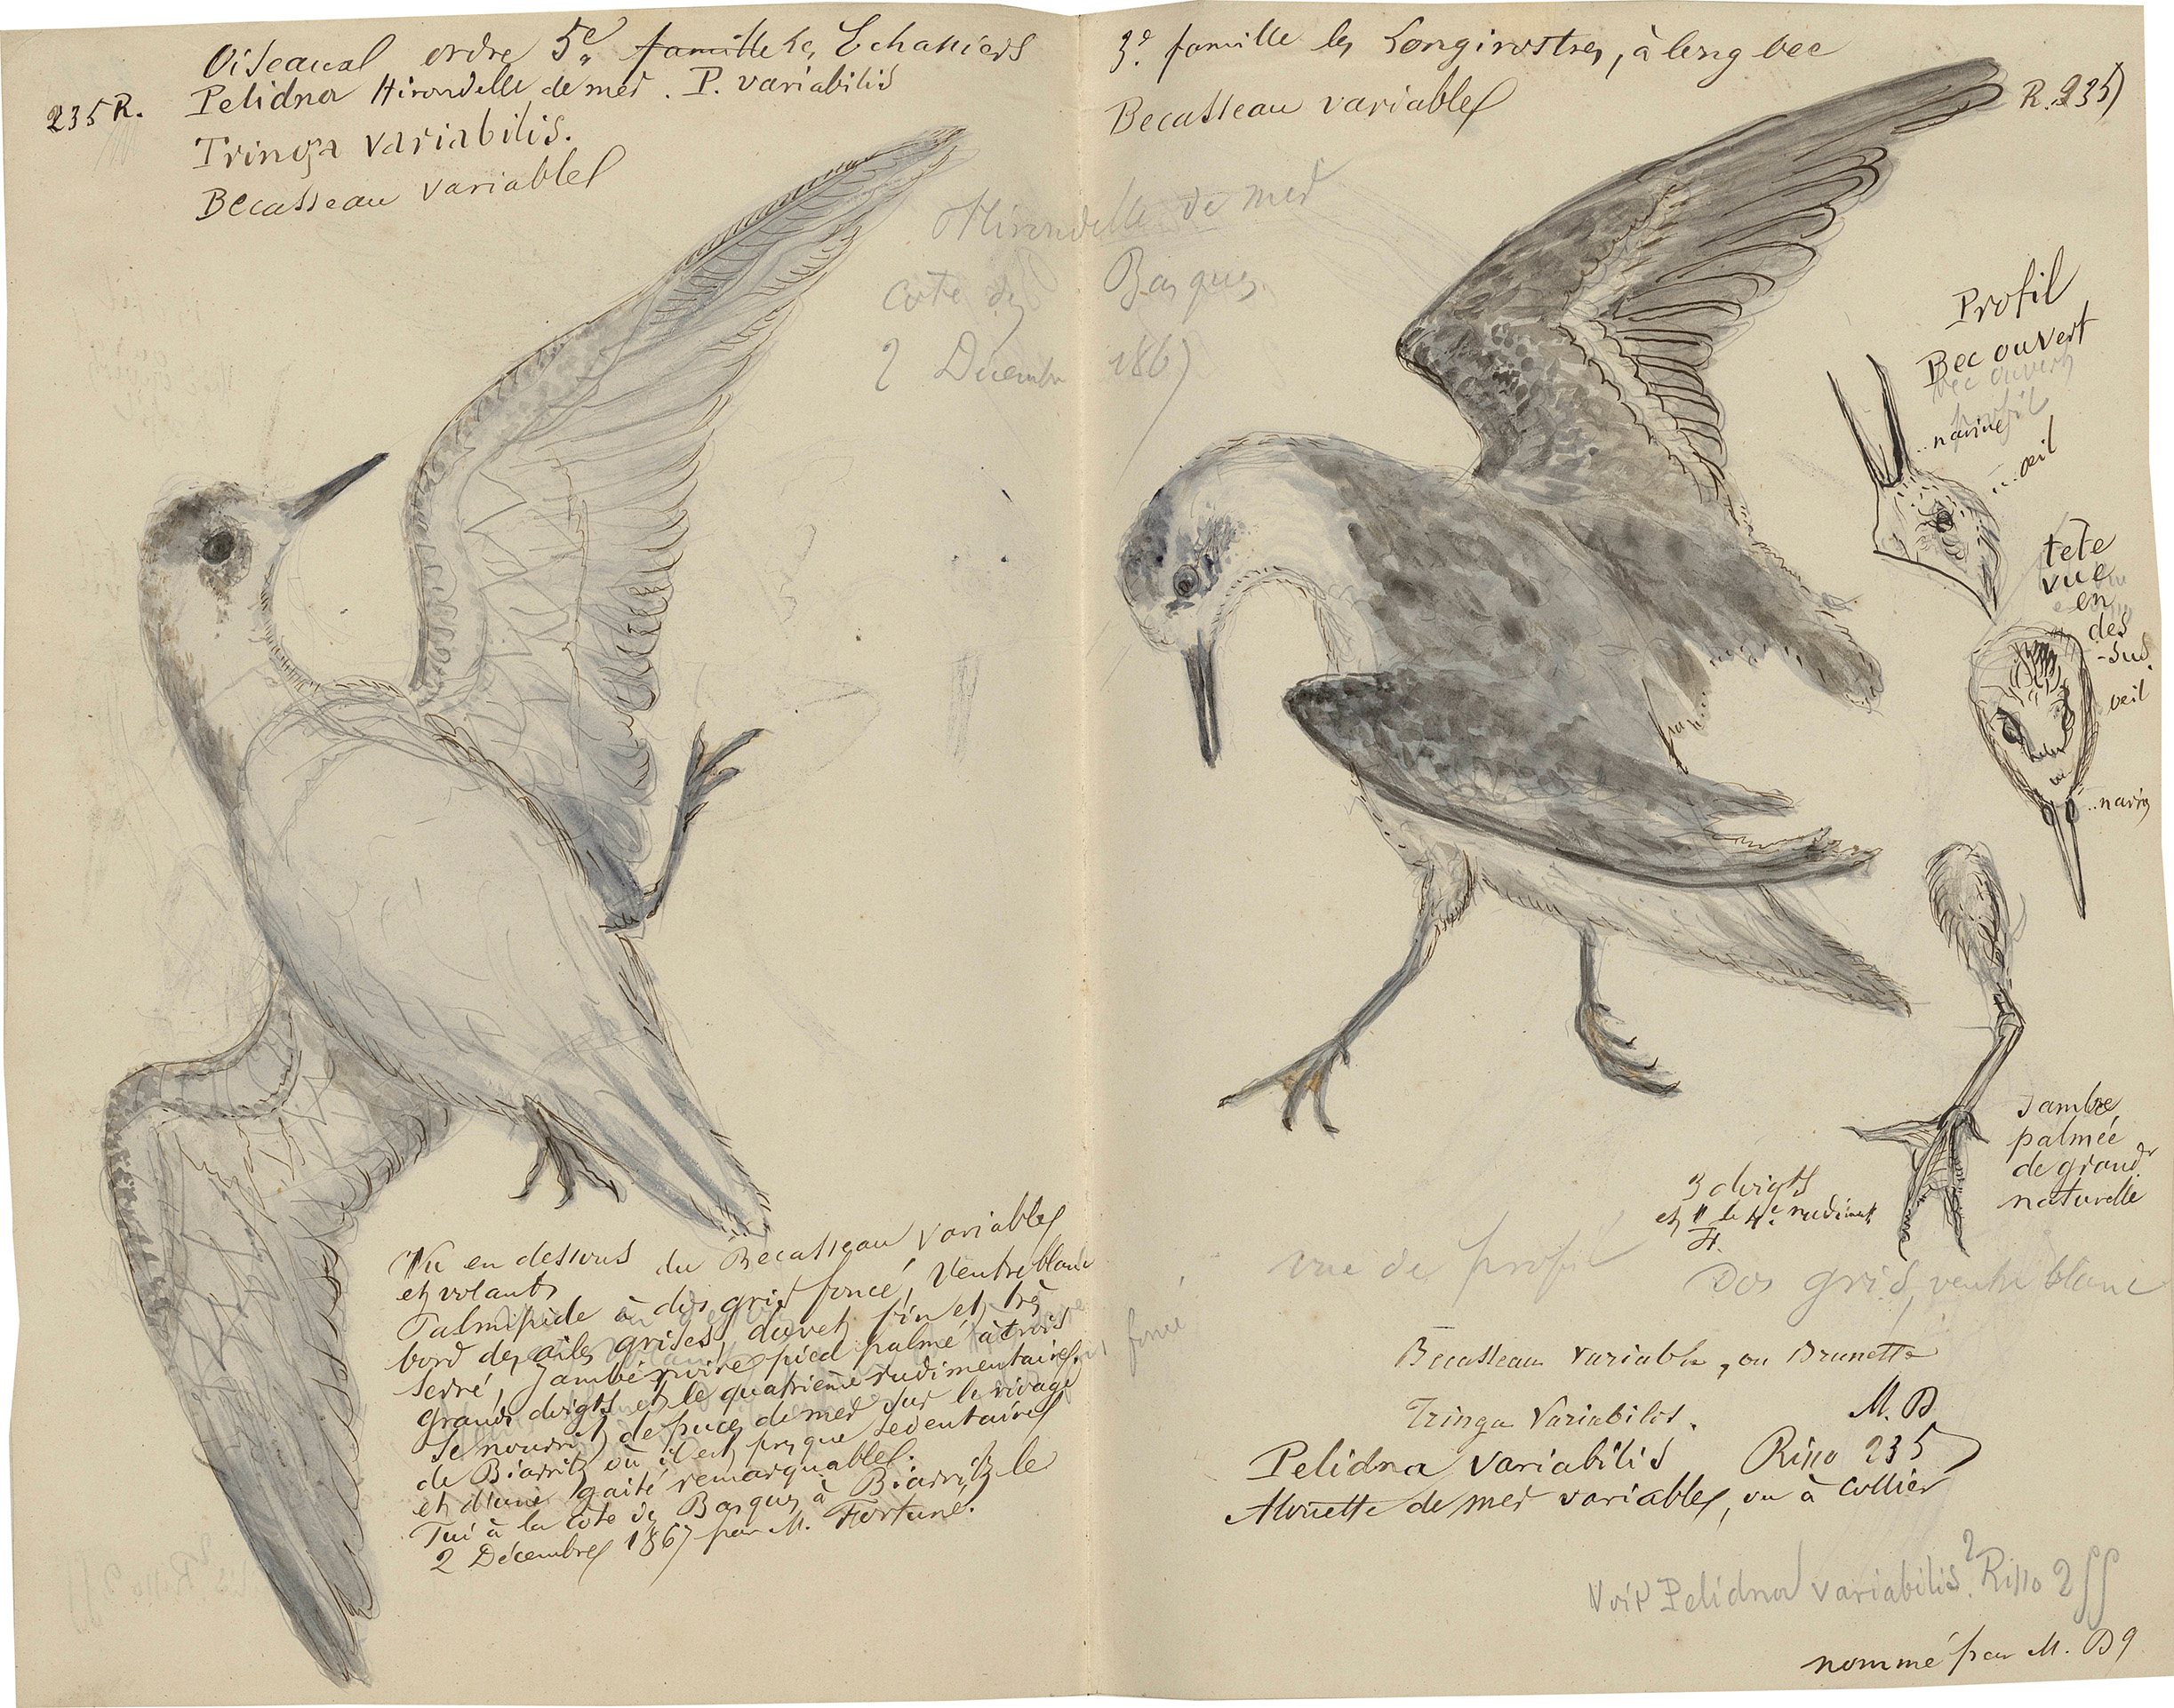 Oiseaux ordre 5e famille les Echassiers
235 R. Pelidna Hirondelle de mer. P. variabilis
Tringa variabilis.
Becasseau variable
3e. famille les Longirostres, à long bec
Becasseau variable
R. 235
Hirondelle de mer
Cote des Basques
2 Décembre 1867
Profil
Bec ouvert
bec ouvert
profil
narine
oeil
tete
vue
en
des
-sus.
oeil
Jambe
palmée
de grandr
naturelle
3 doigts
et le 4e. rudiment
4.
vue de profil
Dos gris, ventre blanc
foncé
Vu en dessous du Becasseau variable
et volant
Palmipède à dos gris foncé, ventre blanc
bord des ailes grises, duvet fin et très
serré, Jambe noire pied palmé à trois
grands doigts et le quatrième rudimentaire.
Se nourrit de puces de mer sur le rivage
de Biarritz où il est presque sedentaire
et d'une gaité remarquable.
Tué à la côte des Basques à Biarritz le
2 Décembre 1867 par M. Fortuné.
Becasseau variable, ou Brunette
Tringa Variabilis.
M. D
Pelidna variabilis Risso 235
Alouette de mer variable, ou à collier
Voir Pelidna variabilis? Risso 2
nommé par M. D